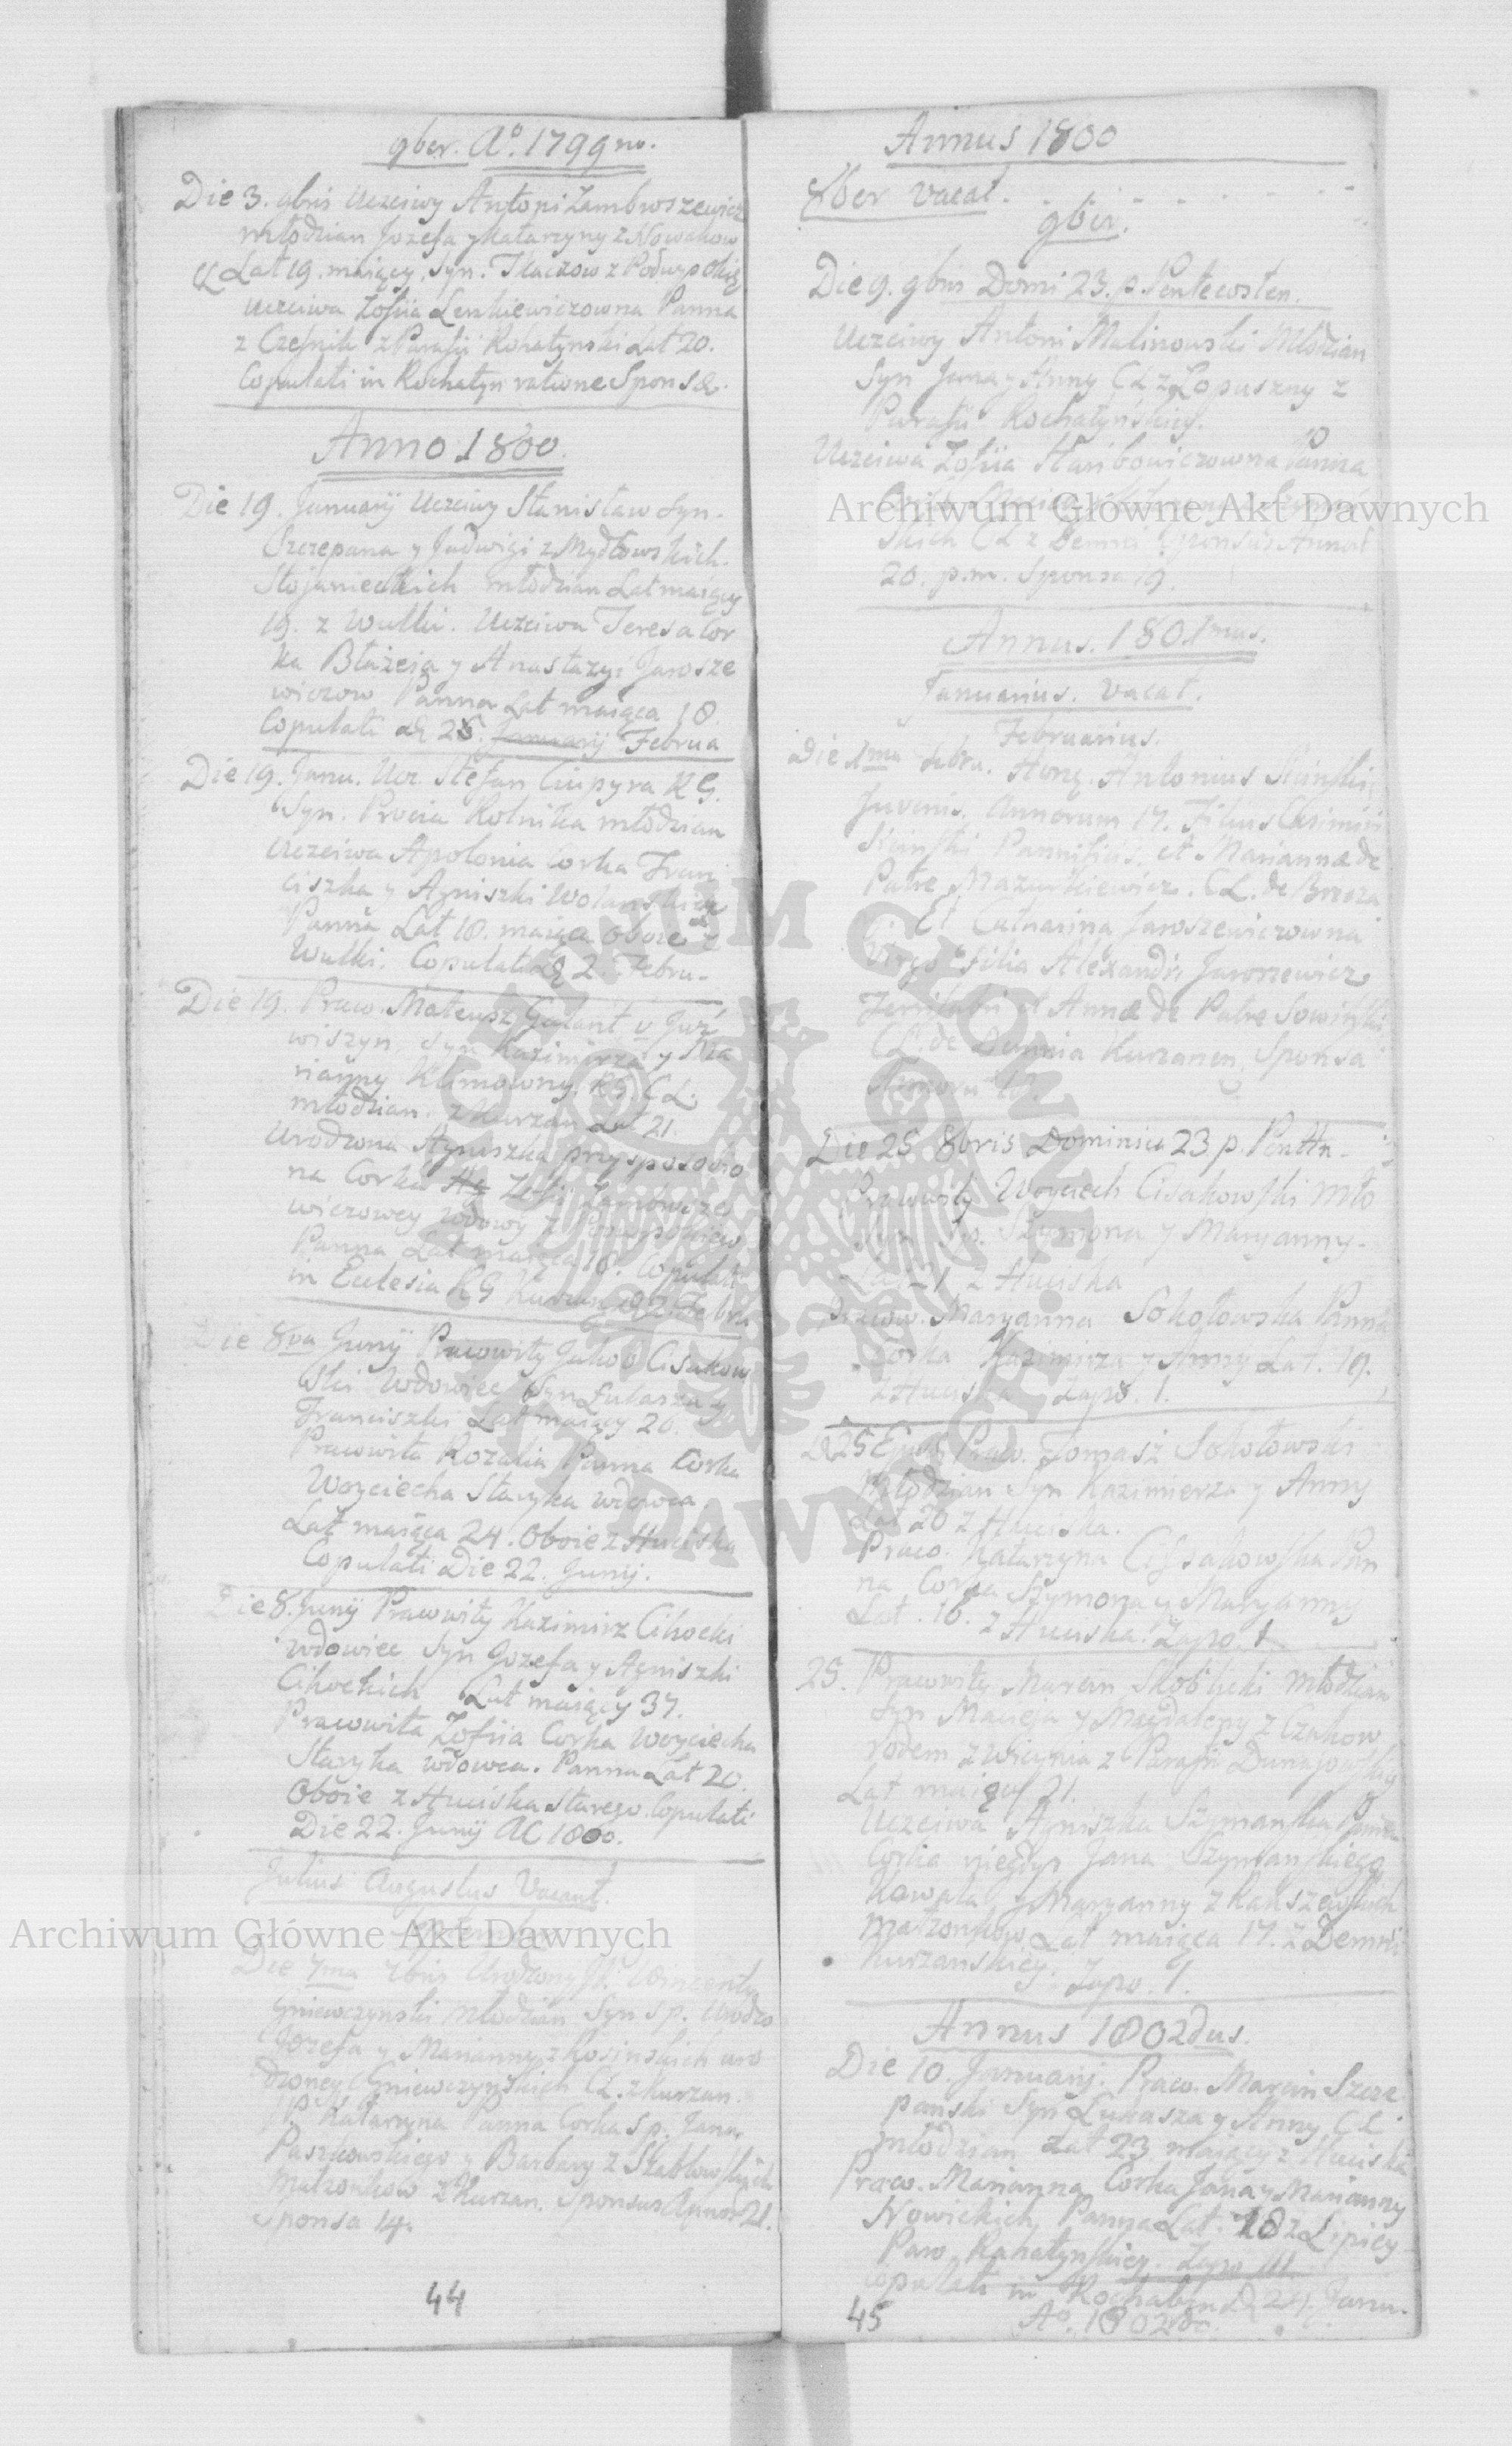 9ber. Aº. 1799no.
Die 3. 9bris Uczciwy Antoni Zambroszewicz
młodzian Jozefa y Katarzyny z Nowakow
Lat 19. maiący, Syn. Tkaczow z Podwysokię
Uczciwa Zofiia Leszkiewiczowna Panna
z Czesnik z Parafii Rohatynski Lat 20.
Copulati in Rochatyn ratione Sponsæ.
Anno 1800.
Die 19. Januarij Uczciwy Stanisław Syn.
Szczepana y Jadwigi z Mydłowskich.
Stojanieckich młodzian Lat maiący
19. z Wulki. Uczciwa Teresa Cor
ka Błażeja y Anastazyi Jarosze
wiczow Panna Lat maiąca 18.
Copulati 25. Januarij Februa
Die 19. Janu. Ucz. Stefan Ciupyra RG.
Syn. Procia Rolnika młodzian
Uczciwa Apolonia Corka Fran
ciszka y Agniszki Wolanskich
Panna Lat 18. maiąca oboie z
Wulki. Copulati 2. Febru-
Die 19. Praw. Mateusz Galant v Juź
wiszyn, Syn Kazimirza y Ma
rianny Klimowny. RG. CL.
młodzian. z Kurzan Lat 21.
Urodzona Agniszka przysposobio
na Corka Zofii Zambrosze
wiczowey wdowy z
Panna Lat maiąca 18. Copulati
in Eclesia RG Kurzan 2. Febru
Die 8va Junij Pracowity Jakob Cisakow
ski Wdowiec Syn Łukasza y
Franciszki Lat maiący 26.
Pracowita Rozalia Panna Corka
Woyciecha Staryka wdowca.
Lat maiąca 24. Oboie z Huciska
Copulati Die 22. Junij.
Die 8. Junij Pracowity Kazimirz Cihocki
Wdowiec Syn Jozefa y Agniszki
Cihockich Lat maiący 37.
Pracowita Zofiia Corka Woyciecha
Staryka wdowca. Panna Lat 20.
Oboie z Huciska starego. Copulati
Die 22. Junij AC 1800.
Julius Augustus Vacant.
Die 7ma 7bris Urodzony JP. Wincenty
Gniewczynski Młodzian Syn Sp. Urodzo
Jozefa y Marianny z Kosinskich uro
dzoney Gniewczynskich CL. z Kurzan.
JP. Katarzyna Panna Corka Sp. Jana
Paszkowskiego y Barbary z Szabłowskich
Małzonkow z Kurzan. Sponsus Annor 21.
Sponsa 14.
44
Annus 1800
8ber vacat.
9ber.
Die 9. 9bris Domi 23. p. Pentecosten.
Uczciwy Antoni Malinowski Młodzian
Syn Jana y Anny CL z Łopuszny z
Parafii Rochatyńskiey.
Uczciwa Zofiia Stanbowiczowna Panna
skich CL z Demni Sponsus Annor
20. p.m. Sponsa 19.
Annus. 1801mus.
Januarius. vacat.
Februarius.
Die 1ma Febru. Hong. Antonius Skinski
Juvenis, Annorum 17. Filius Casimiri
Skinski Pannificis. et Mariannæ de
Patre Mazurkiewicz. CL. de Brzeza
Et Catharina Jaroszewiczowna
Virgo Filia Alexandri Jaroszewicz
et Annæ de Patre Sowiński
CL. de Demnia Kurzanen, Sponsa
Die 25 8bris Dominica 23 p. Pentn-
Pracowity Woyciech Cisakowski Mło
dzian Sp. Szymona y Maryanny-
Lat 21 z Huciska
Pracow. Maryanna Sokołowska Panna
Corka Kazimirza y Anny Lat. 19.
z Huciska Zapo. 1.
25 Ejusd Praco. Tomasz Sokołowski
Młodzian Syn Kazimierza y Anny
Lat 20 z Huciska.
Praco. Katarzyna Cissakowska Pan
na Corka Szymona y Maryanny
Lat. 16. z Huciska. Zapo. 1
25. Pracowity Marcin Skobliki Młodzian
Syn Macieja y Magdaleny z Czakow
rodem z Wicynia z Parafii Dunajowskiy
Lat maiący 21.
Uczciwa Agniszka Szymańska Panna
Corka niegdys Jana Szymanskiego
Kowala y Maryanny z Kakszewskich
małzonkow. Lat maiąca 17. z Demni
Kurzanskiey. Zapo. 1.
Annus 1802dus.
Die 10. Januarij. Praco. Marcin Szcze
panski Syn Łukasza y Anny CL
młodzian Lat 23. maiący z Huciska
Praco. Marianna Corka Jana y Marianny
Nowickich Panna Lat. 18 z Lipicy
Paro. Rohatynskiey. Zapo III.
Copulati in Rochatyn 24. Janu.
45 Aº. 1802do.
Archiwum Główne Akt Dawnych
Archiwum Główne Akt Dawnych
ARCHIWUM GŁÓWNE AKT DAWNYCH